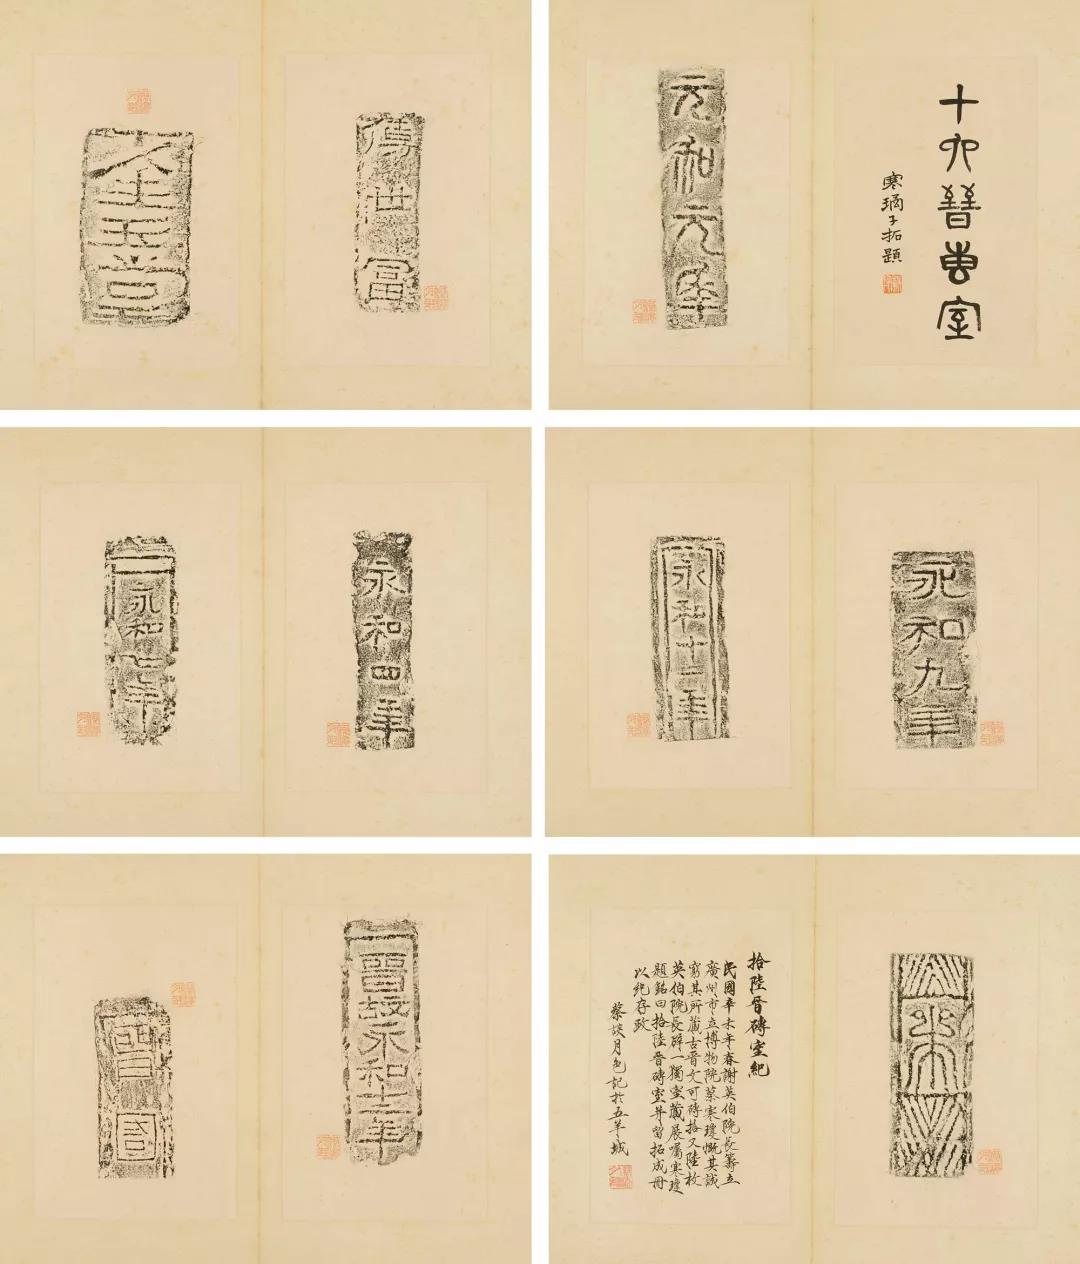 十六晉叀室
寒璚子拓題
元和元年
世富
金玉堂
永和九年
永和十二年
永和四年
永和七年
晉故永和年
國
拾陸晉磚室紀
民國辛未年春謝英伯院長籌立
廣州市立博物院蔡寒瓊慨其誠
窮其所藏古晉文可磚拾又陸枚
英伯院長辟一獨室藏展囑寒瓊
題銘曰拾陸晉磚室并留拓成冊
以紀存
蔡談月色記於五羊城